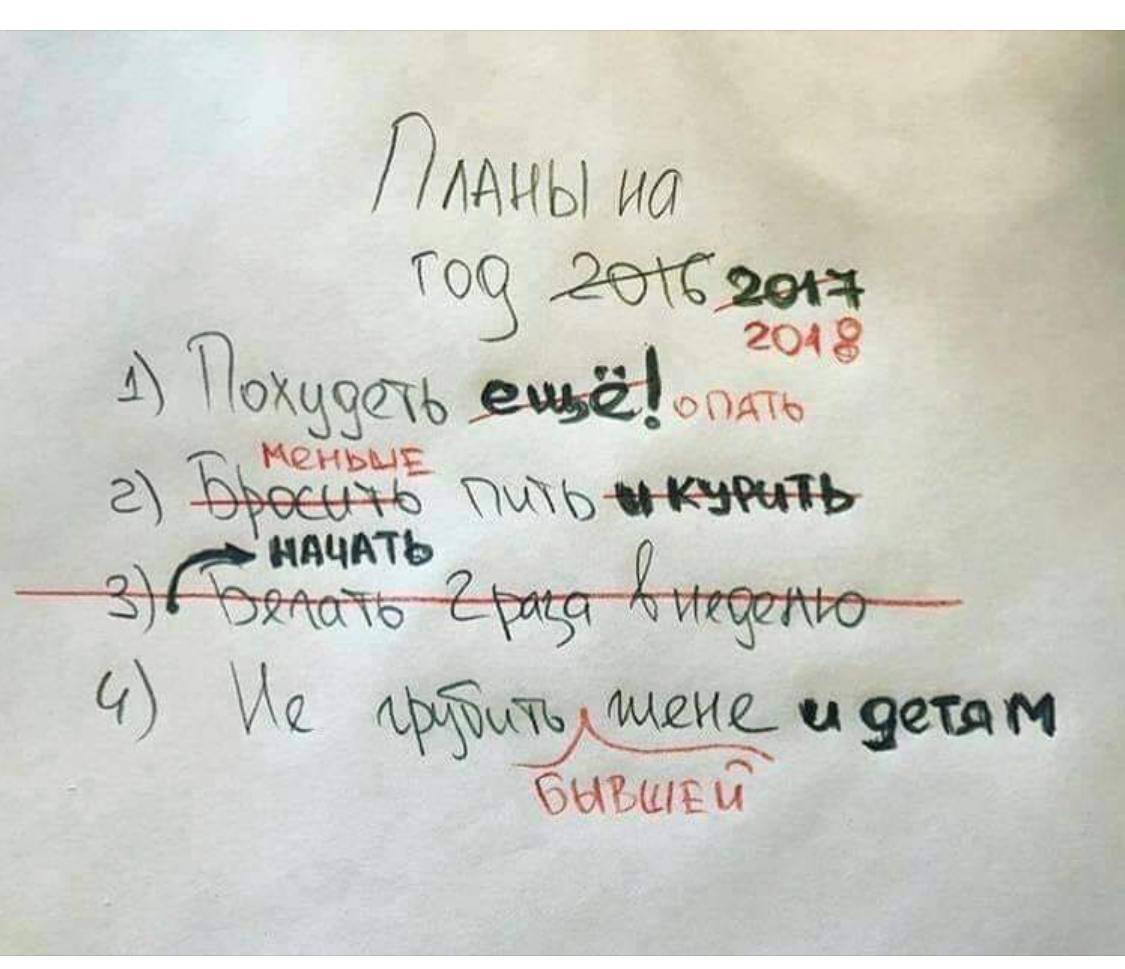 Планы на
год 2016 2017
2018
1) Похудеть ещё! опять
меньше
2) Бросить пить и курить
НАЧАТЬ
3) Бегать 2 раза в неделю
4) Не грубить жене и детям
БЫВШЕЙ